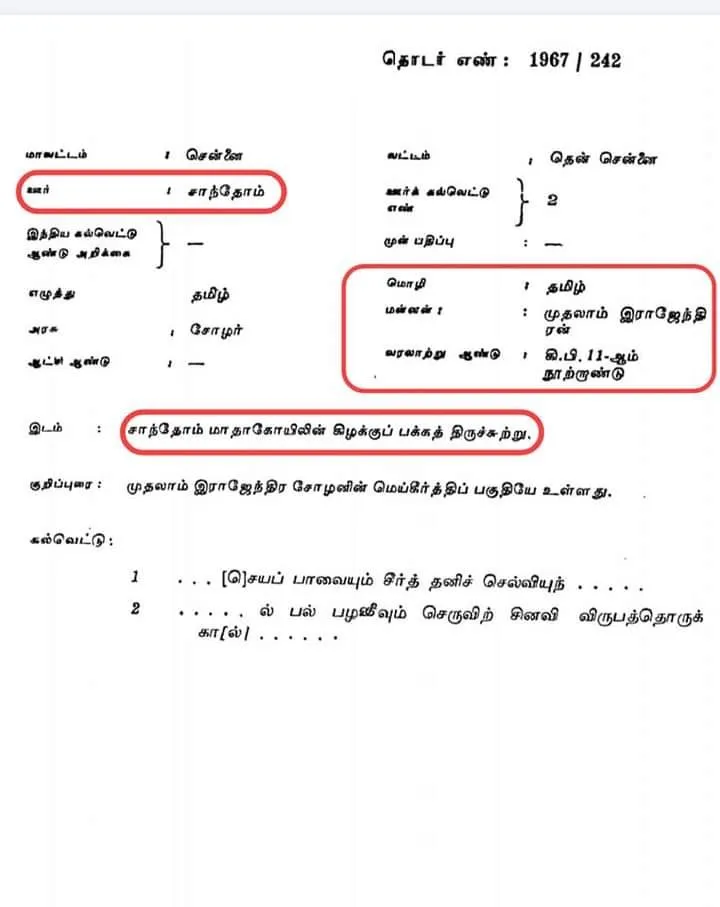 தொடர் எண் : 1967 / 242
மாவட்டம் : சென்னை
வட்டம் : தென் சென்னை
ஊர் : சாந்தோம்
ஊர்க் கல்வெட்டு எண் } 2
இந்திய கல்வெட்டு ஆண்டு அறிக்கை } —
முன் பதிப்பு : —
எழுத்து தமிழ்
மொழி : தமிழ்
அரசு : சோழர்
மன்னன் : முதலாம் இராஜேந்தி
ரன்
ஆட்சி ஆண்டு : —
வரலாற்று ஆண்டு : கி.பி. 11-ஆம்
நூற்றாண்டு
இடம் : சாந்தோம் மாதாகோயிலின் கிழக்குப் பக்கத் திருச்சுற்று.
குறிப்புரை : முதலாம் இராஜேந்திர சோழனின் மெய்கீர்த்திப் பகுதியே உள்ளது.
கல்வெட்டு :
1 . . . [செ]சயப் பாவையும் சீர்த் தனிச் செல்வியுந் . . . . .
2 . . . . . ல் பல் பழனீவும் செருவிற் சினவி விருபத்தொருக்
கா[ல்] . . . . . .